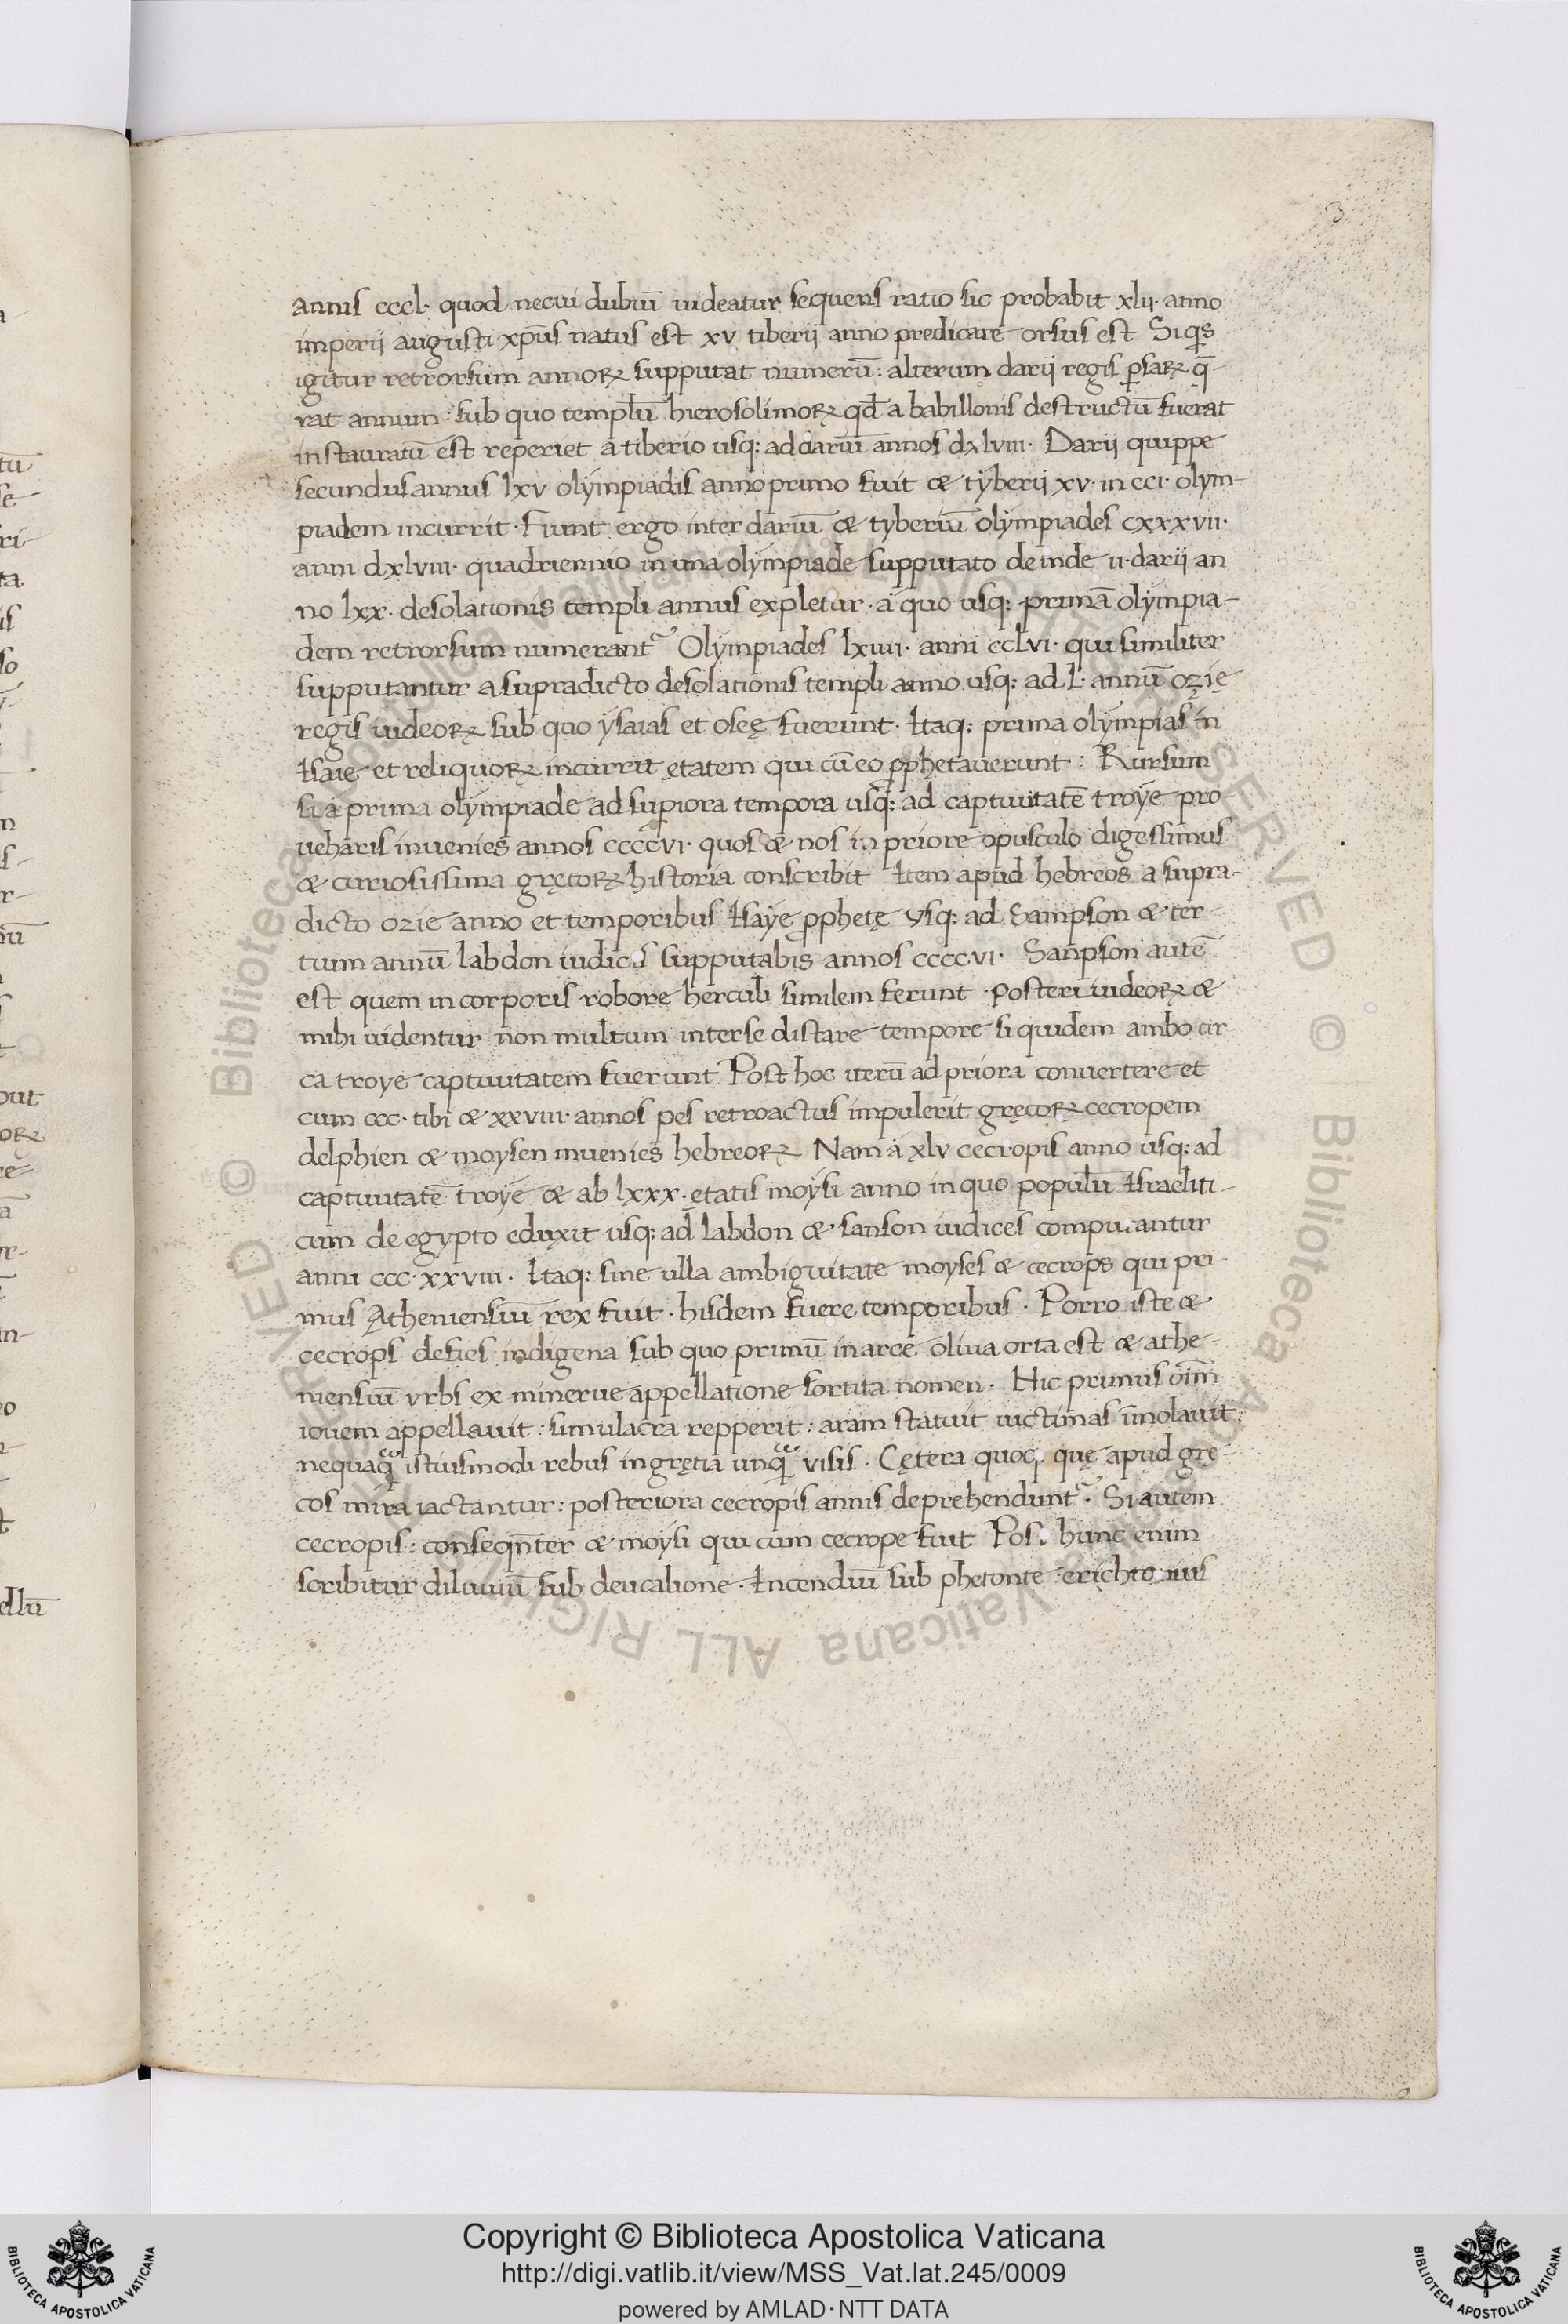 3
annis cccl· quod necui dubiū uideatur sequens ratio sic probabit xlii· anno
imperij augusti xp̄us natus est xv tiberij anno predicare orsus est Siq̄s
igitur retrorsum annoꝝ supputat numerū: alterum darij regis ꝑsaꝝ q̄-
rat annum· sub quo templū hierosolimoꝝ qđ a babillonis destructū fuerat
instauratū est reperiet a tiberio usq; ad dariū annos dxlviii· Darij quippe
secundus annus lxv olympiadis anno primo fuit & tyberij xv· in cci· olym-
piadem incurrit· Fiunt ergo inter dariū & tyberiū olympiades cxxxvii·
anni dxlviii· quadriennio in una olympiade supputato deinde ii· darij an
no lxx· desolationis templi annus expletur· a quo usq; primā olympia-
dem retrorsum numerant᷑ Olympiades lxiiii· anni cclvi· qui similiter
supputantur a supradicto desolationis templi anno usq; ad L· annū ozię
regis iudeoꝝ sub quo ysaias et oseę fuerunt· Itaq; prima olympias in
Isaie et reliquoꝝ incurrit ętatem qui cū eo ꝓphetauerunt: Rursum
si a prima olympiade ad supiora tempora usq; ad captiuitatē troye pro
ueharis inuenies annos ccccvi· quos & nos in priore opusculo digessimus
& curiosissima gręcoꝝ historia conscribit Item apud hebreos a supra-
dicto ozie anno et temporibus Isaye ꝓphetę usq; ad Sampson & ter-
tium annū labdon iudicis supputabis annos ccccvi· Sanpson autē
est quem in corporis robore herculi similem ferunt· posteri iudeoꝝ &
mihi uidentur non multum interse distare tempore si quidem ambo cir
ca troye captiuitatem fuerunt Post hoc iterū ad priora conuertere et
cum ccc· tibi & xxviii· annos pes retroactus impulerit gręcoꝝ cecropem
delphien & moysen inuenies hebreoꝝ Nam a xlv cecropis anno usq; ad
captiuitatē troye & ab lxxx· ętatis moysi anno in quo populū Israeliti-
cum de egypto eduxit usq; ad labdon & sanson iudices computantur
anni ccc·xxviii· Itaq; sine ulla ambiguitate moyses & cecrops qui pri-
mus Atheniensiū rex fuit· hisdem fuere temporibus· Porro iste &
cecrops defies indigena sub quo primū in arce oliua orta est & athe-
niensiū vrbs ex minerue appellatione sortita nomen· Hic primus oīm
iouem appellauit: simulacra repperit: aram statuit uictimas īmolauit:
nequaq̃ istiusmodi rebus in gręcia unq̃ visis· Cętera quoq; quę apud gre-
cos mira iactantur: posteriora cecropis annis deprehendunt᷑· Si autem
cecropis: conseqn̄ter & moysi qui cum cecrope fuit Post hunc enim
scribitur diluuiū sub deucalione· Incendiū sub phetonte erichtonius
Copyright © Biblioteca Apostolica Vaticana
http://digi.vatlib.it/view/MSS_Vat.lat.245/0009
powered by AMLAD·NTT DATA
BIBLIOTECA APOSTOLICA VATICANA
BIBLIOTECA APOSTOLICA VATICANA